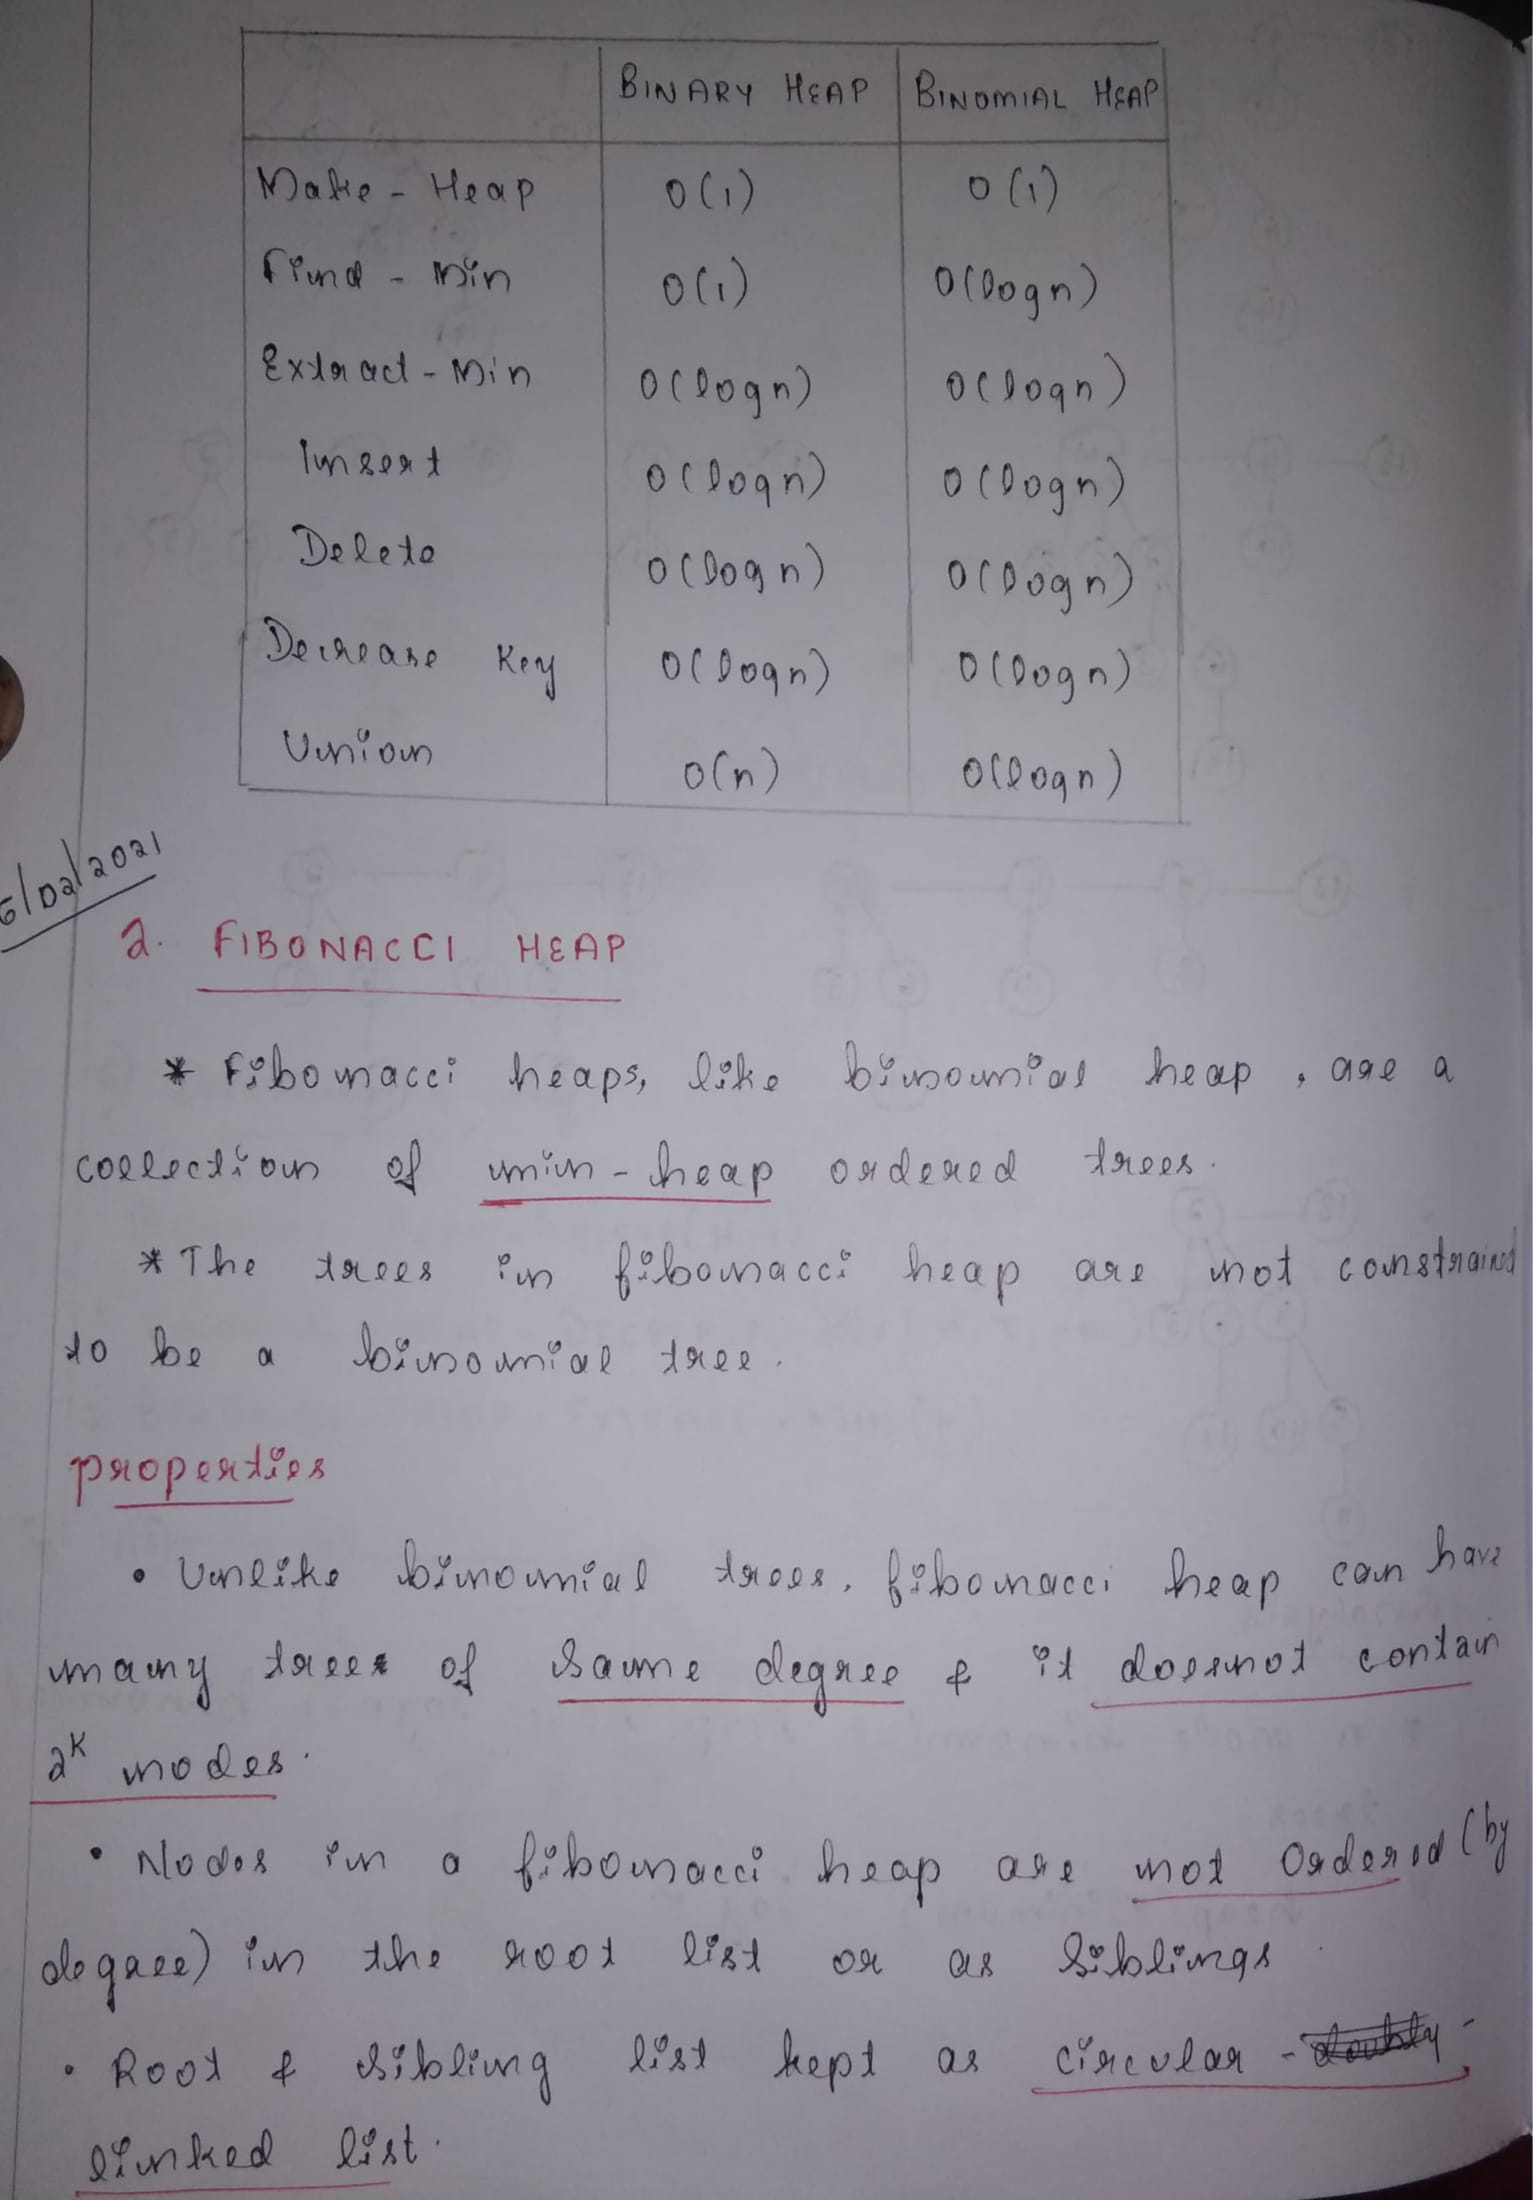 BINARY HEAP BINOMIAL HEAP
Make - Heap O(1) O(1)
Find - Min O(1) O(logn)
Extract - Min O(logn) O(logn)
Insert O(logn) O(logn)
Delete O(logn) O(logn)
Decrease Key O(logn) O(logn)
Union O(n) O(logn)
6/02/2021
2. FIBONACCI HEAP
* Fibonacci heaps, like binomial heap, are a
collection of min-heap ordered trees.
* The trees in fibonacci heap are not constrained
to be a binomial tree.
properties
• Unlike binomial trees, fibonacci heap can have
many trees of same degree & it doesnot contain
2^k nodes.
• Nodes in a fibonacci heap are not Ordered (by
degree) in the root list or as siblings.
• Root & sibling list kept as circular - doubly -
linked list.